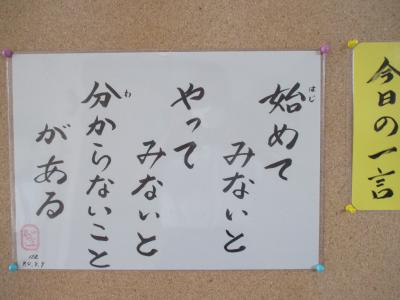 今日の一言
始めて
みないと
やって
みないと
分からないこと
がある
はじ
わ